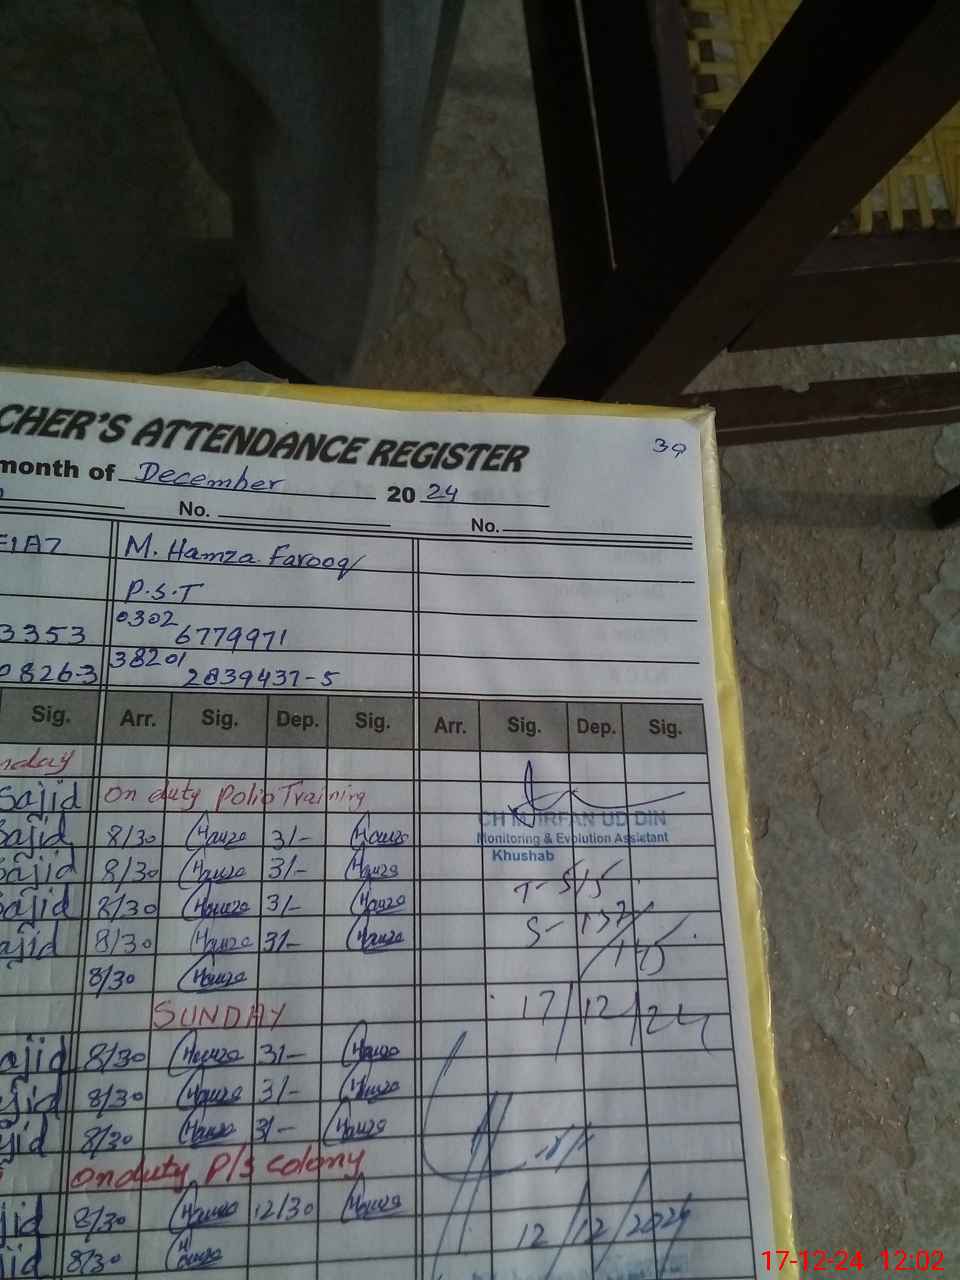 CHER'S ATTENDANCE REGISTER
39
month of December 2024
No. No.
M. Hamza Farooq
P.S.T
3353 0302 6779971
08263 38201 2839437-5
Sig. Arr. Sig. Dep. Sig. Arr. Sig. Dep. Sig.
nday
Sajid On duty Polio Training
CH M. IRFAN UD DIN
Monitoring & Evolution Assistant
Khushab
Sajid 8/30 Hamza 3/- Hamza
Sajid 8/30 Hamza 3/- Hamza
T- 5/5
Sajid 8/30 Hamza 3/- Hamza
S- 137/
145
ajid 8/30 Hamza 3/- Hamza
8/30 Hamza
SUNDAY
17/12/24
ajid 8/30 Hamza 3/- Hamza
ajid 8/30 Hamza 3/- Hamza
jid 8/30 Hamza 3/- Hamza
on duty P/S colony
jid 8/30 Hamza 12/30 Hamza
12/12/2024
jid 8/30 Hamza
17-12-24 12:02